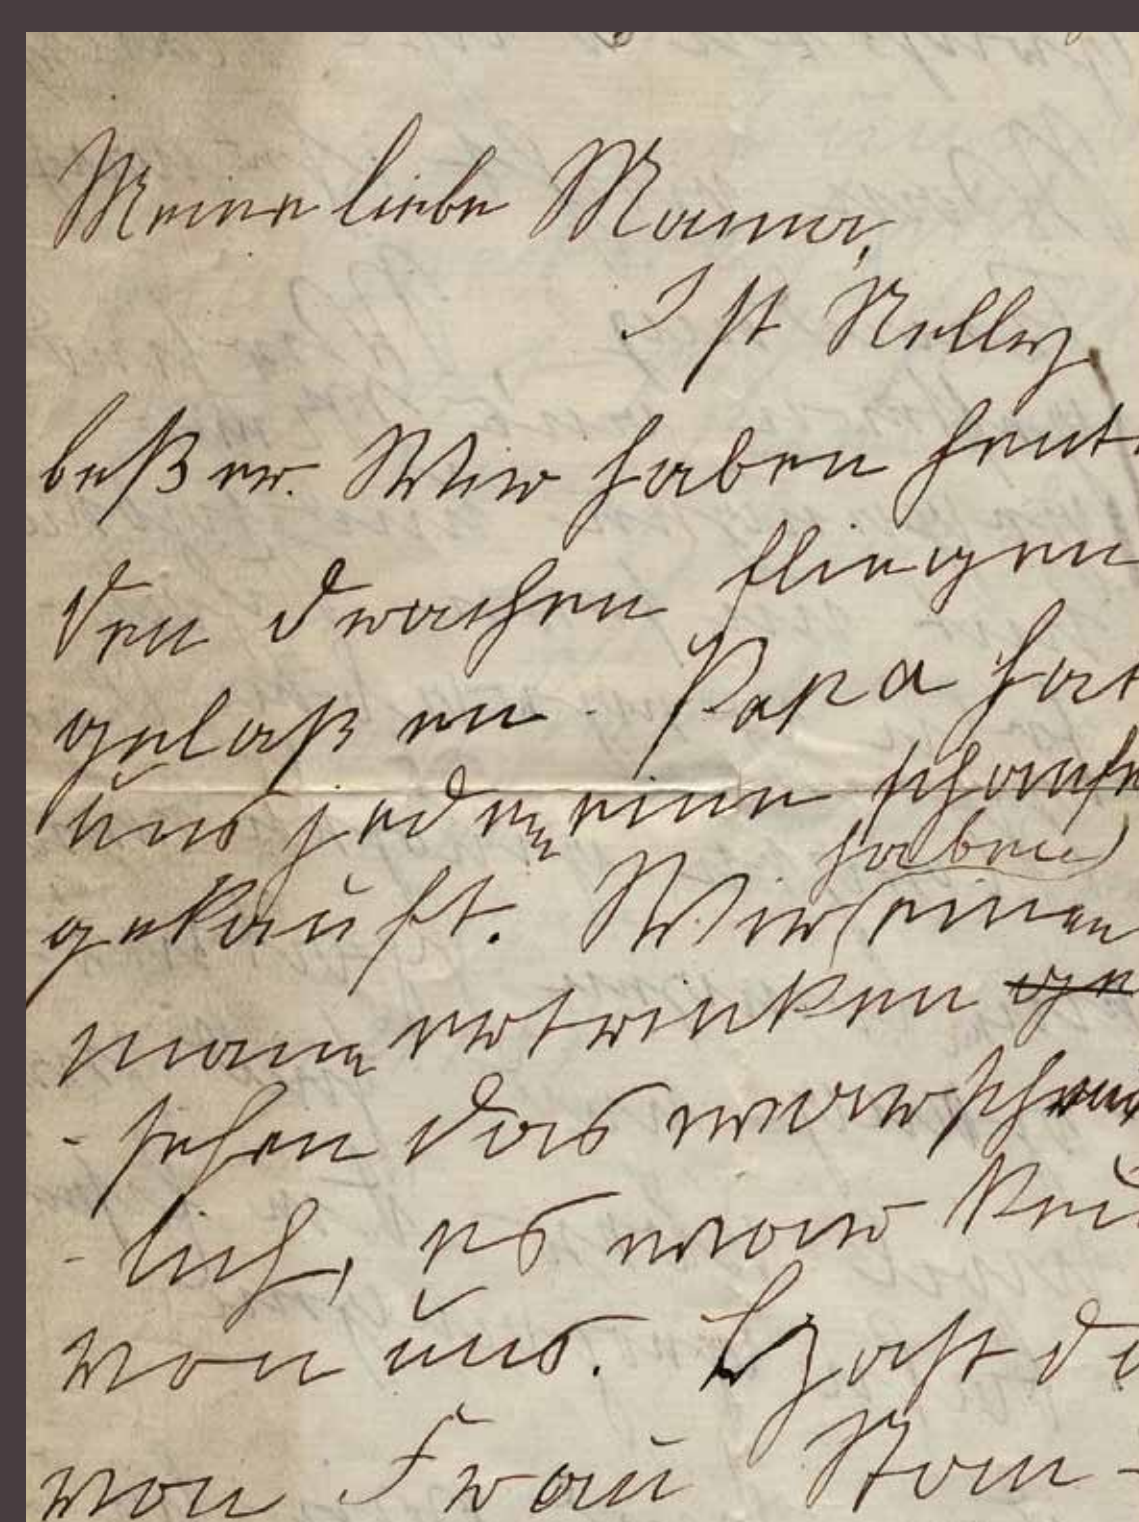 Meine liebe Mama,
Ist Nelly
beßer. Wir haben heut
den drachen fliegen
gelaßen. Papa hat
uns jeden eine schaufe
haben
gekauft. Wir einen
mann ertrinken ge
- sehen das war schreck
- lich, es war kei
von uns. Hast du
von Frau Rom-